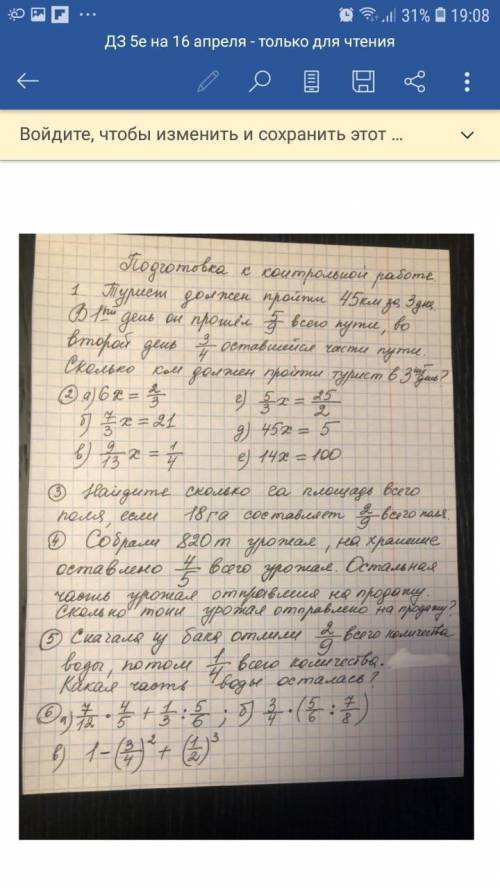 31% 19:08
ДЗ 5е на 16 апреля - только для чтения
Войдите, чтобы изменить и сохранить этот ...
Подготовка к контрольной работе.
1 Турист должен пройти 45км за 3 дня.
В 1ый день он прошёл 5/9 всего пути, во
второй день 3/4 оставшейся части пути.
Сколько км должен пройти турист в 3ий день?
② а) 6x = 2/3 г) 5/3 x = 25/2
б) 7/3 x = 21 д) 45x = 5
в) 9/13 x = 1/4 е) 14x = 100
③ Найдите сколько га площадь всего
поля, если 18 га составляет 2/9 всего поля.
④ Собрали 820 т урожая, на хранение
оставлено 4/5 всего урожая. Остальная
часть урожая отправлена на продажу.
Сколько тонн урожая отправлено на продажу?
⑤ Сначала из бака отлили 2/9 всего количества
воды, потом 1/4 всего количества.
Какая часть воды осталась?
⑥ а) 7/12 · 4/5 + 1/3 : 5/6 ; б) 3/4 · (5/6 : 7/8)
в) 1 - (3/4)² + (1/2)³